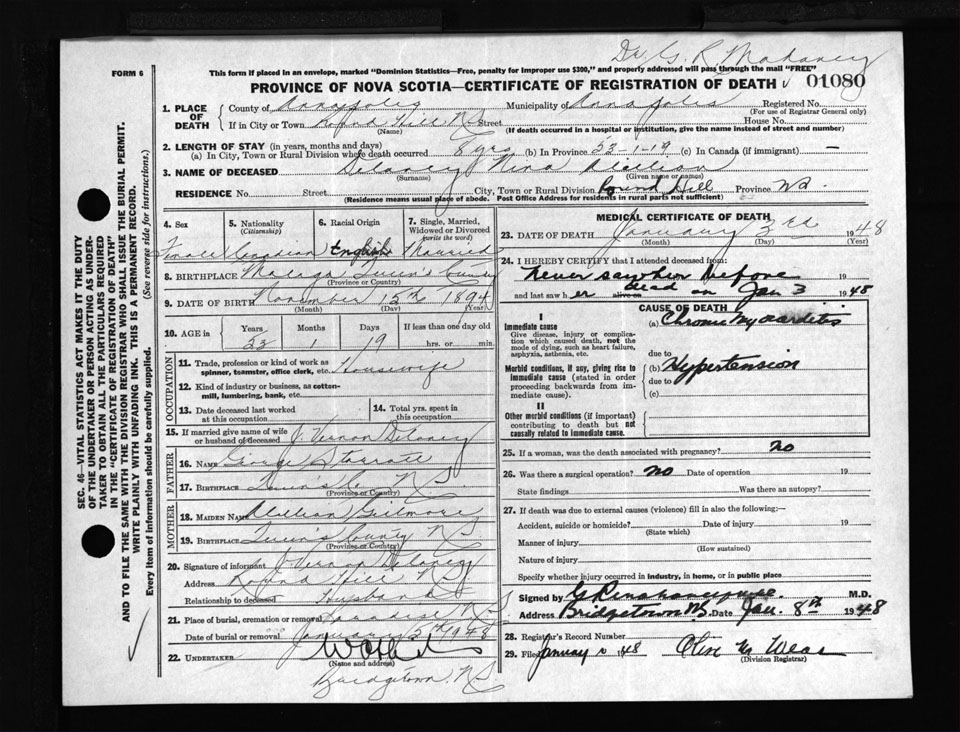 Dr. G. R. Mahaney
FORM 6
This form if placed in an envelope, marked "Dominion Statistics—Free, penalty for improper use $300," and properly addressed will pass through the mail "FREE"
PROVINCE OF NOVA SCOTIA—CERTIFICATE OF REGISTRATION OF DEATH
01080
1. PLACE OF DEATH
County of Annapolis Municipality of Annapolis Registered No.
(For use of Registrar General only)
If in City or Town Round Hill N.S. Street House No.
(Name) (If death occurred in a hospital or institution, give the name instead of street and number)
2. LENGTH OF STAY (in years, months and days)
(a) In City, Town or Rural Division where death occurred 8 yrs (b) In Province 53-1-19 (c) In Canada (if immigrant) —
3. NAME OF DECEASED Delaney Nina
(Surname) (Given name or names)
RESIDENCE No. Street City, Town or Rural Division Round Hill Province N.S.
(Residence means usual place of abode. Post Office Address for residents in rural parts not sufficient)
4. Sex 5. Nationality (Citizenship) 6. Racial Origin 7. Single, Married, Widowed or Divorced (write the word)
Female Canadian English Married
8. BIRTHPLACE Malaga Queen's County
(Province or Country)
9. DATE OF BIRTH November 15th 1894
(Month) (Day) (Year)
10. AGE in Years Months Days If less than one day old
53 1 19 hrs. or min.
OCCUPATION
11. Trade, profession or kind of work as spinner, teamster, office clerk, etc. Housewife
12. Kind of industry or business, as cotton-mill, lumbering, bank, etc.
13. Date deceased last worked at this occupation
14. Total yrs. spent in this occupation
15. If married give name of wife or husband of deceased J. Vernon Delaney
FATHER
16. NAME George Starratt
17. BIRTHPLACE Queen's Co. N.S.
(Province or Country)
MOTHER
18. MAIDEN NAME Gilmore
19. BIRTHPLACE Queen's County N.S.
(Province or Country)
20. Signature of informant J. Vernon Delaney
Address Round Hill N.S.
Relationship to deceased Husband
21. Place of burial, cremation or removal Paradise N.S.
Date of burial or removal January 5th 1948
22. UNDERTAKER
(Name and address)
Bridgetown, N.S.
MEDICAL CERTIFICATE OF DEATH
23. DATE OF DEATH January 3rd 1948
(Month) (Day) (Year)
24. I HEREBY CERTIFY that I attended deceased from:
Never saw her before 19
and last saw her alive on dead on Jan 3 1948
CAUSE OF DEATH
I
Immediate cause (a) Chronic Myocarditis
Give disease, injury or complication which caused death, not the mode of dying, such as heart failure, asphyxia, asthenia, etc.
due to
Morbid conditions, if any, giving rise to immediate cause (stated in order proceeding backwards from immediate cause).
(b) Hypertension
due to
(c)
II
Other morbid conditions (if important) contributing to death but not causally related to immediate cause.
25. If a woman, was the death associated with pregnancy? No
26. Was there a surgical operation? No Date of operation 19
State findings Was there an autopsy?
27. If death was due to external causes (violence) fill in also the following:—
Accident, suicide or homicide? Date of injury 19
(State which)
Manner of injury
(How sustained)
Nature of injury
Specify whether injury occurred in industry, in home, or in public place
Signed by M.D.
Address Bridgetown NS. Date Jan. 8th 1948
28. Registrar's Record Number
29. Filed January 1948
(Division Registrar)
SEC. 46—VITAL STATISTICS ACT MAKES IT THE DUTY
OF THE UNDERTAKER OR PERSON ACTING AS UNDER-
TAKER TO OBTAIN ALL THE PARTICULARS REQUIRED
IN THE "CERTIFICATE OF REGISTRATION OF DEATH"
AND TO FILE THE SAME WITH THE DIVISION REGISTRAR WHO SHALL ISSUE THE BURIAL PERMIT.
WRITE PLAINLY WITH UNFADING INK. THIS IS A PERMANENT RECORD.
Every item of information should be carefully supplied. (See reverse side for instructions.)